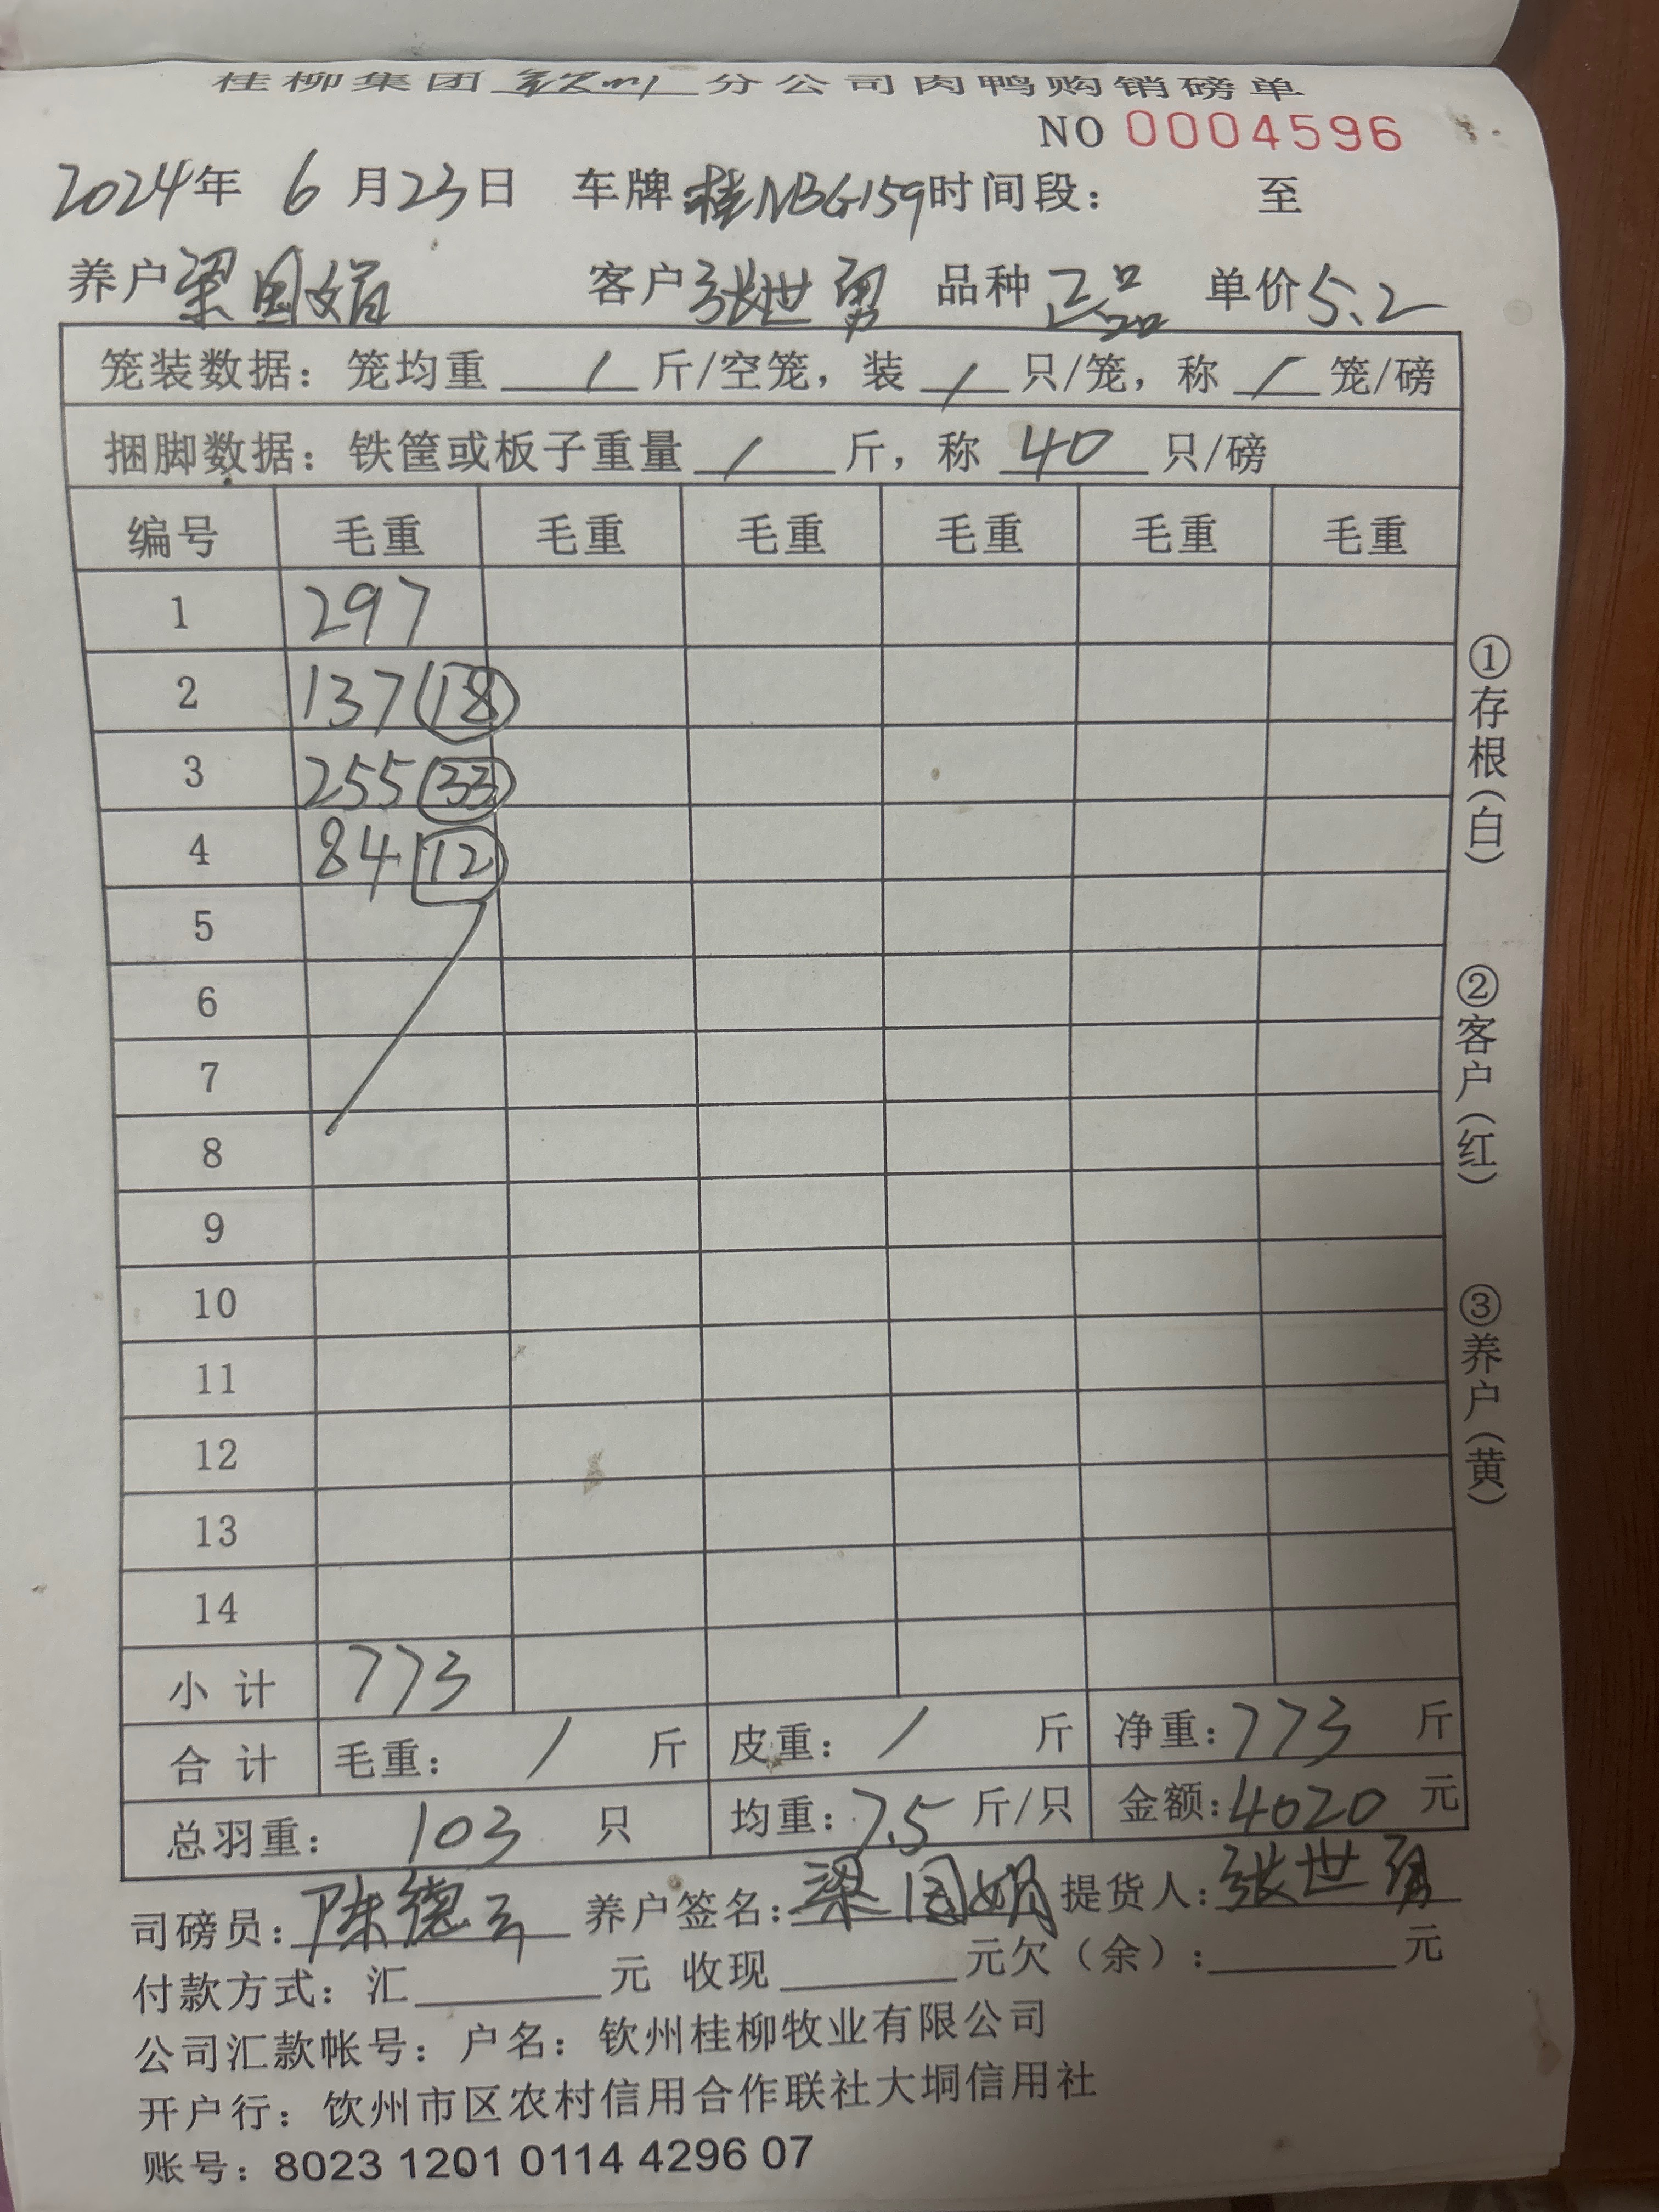 桂柳集团钦州分公司肉鸭购销磅单
NO 0004596
2024年 6月23日 车牌:桂NBG159时间段： 至
养户梁国娟 客户张世勇 品种正品 单价5.2
笼装数据：笼均重 / 斤/空笼，装 / 只/笼，称 / 笼/磅
捆脚数据：铁筐或板子重量 / 斤，称 40 只/磅
编号 毛重 毛重 毛重 毛重 毛重 毛重
1 297
2 137 (18)
3 255 (33)
4 84 (12)
5
6
7
8
9
10
11
12
13
14
小计 773
合计 毛重： / 斤 皮重： / 斤 净重：773 斤
总羽重： 103 只 均重：7.5 斤/只 金额：4020 元
司磅员：陈德云 养户签名：梁国娟 提货人：张世勇
付款方式：汇______元 收现______元欠（余）：______元
公司汇款帐号：户名：钦州桂柳牧业有限公司
开户行：饮州市区农村信用合作联社大垌信用社
账号：8023 1201 0114 4296 07
①存根（白）
②客户（红）
③养户（黄）